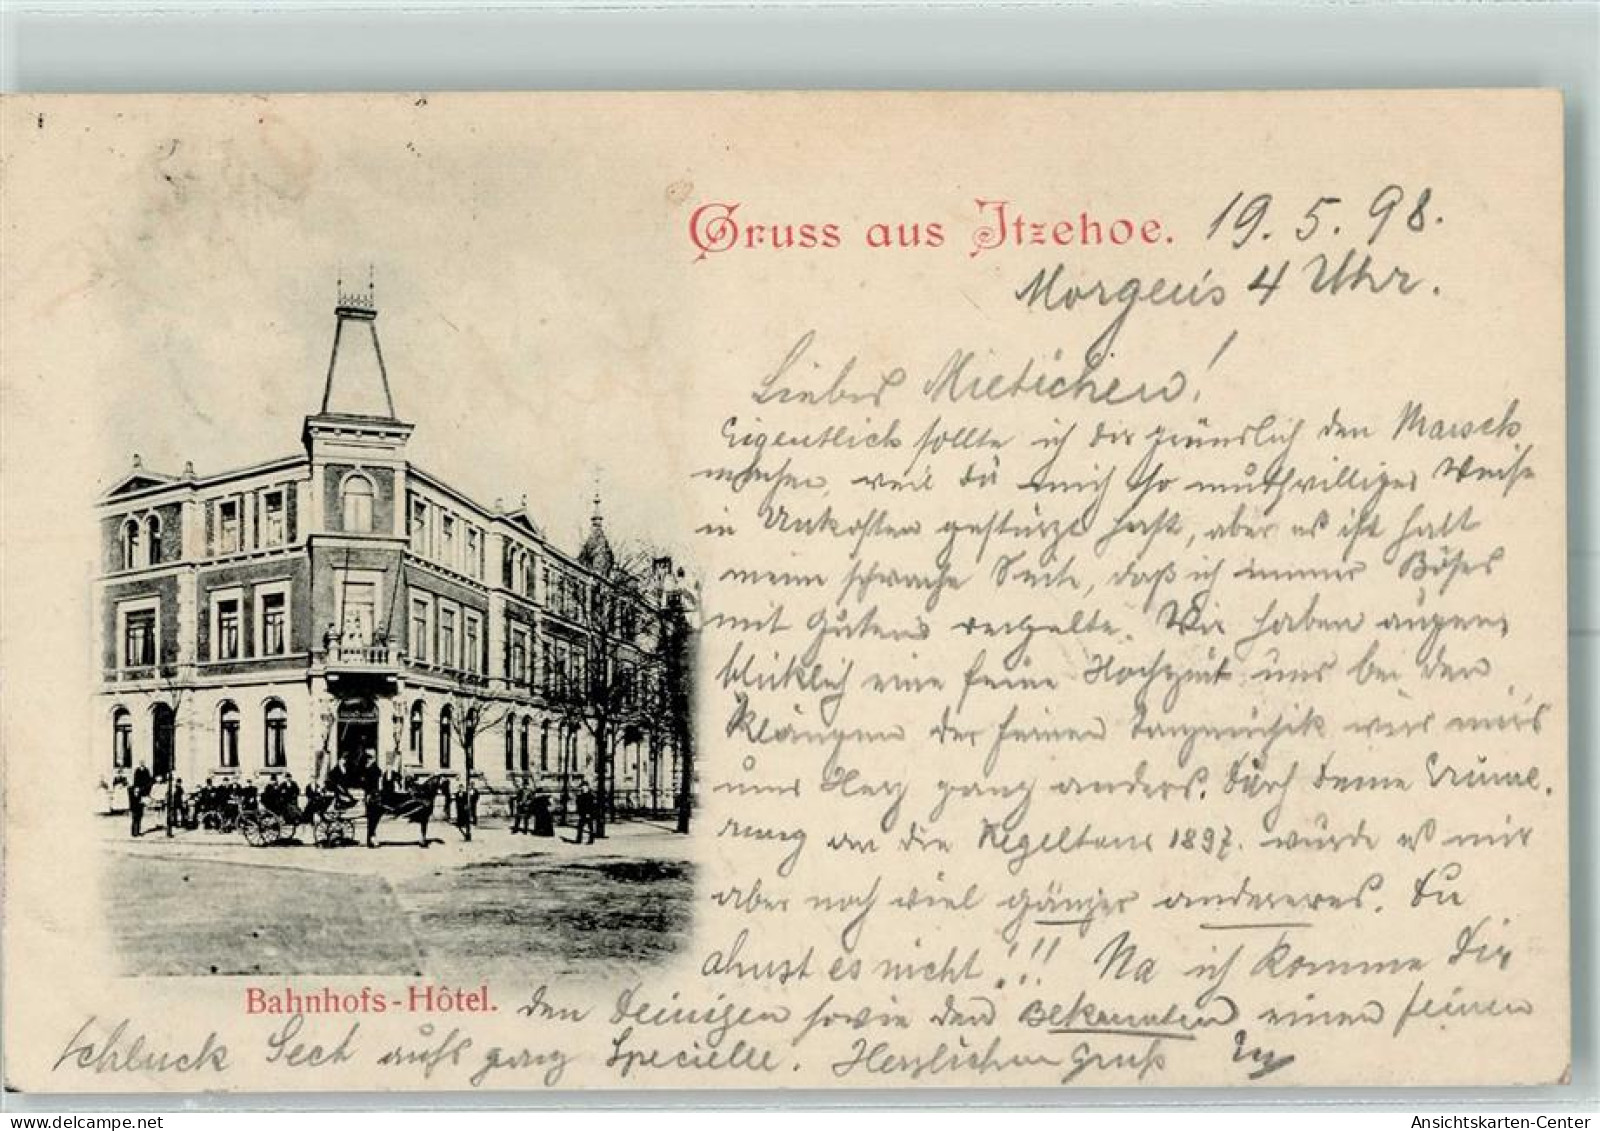 Gruss aus Itzehoe. 19. 5. 98.
Morgens 4 Uhr.
Liebes Mietichen!
Eigentlich sollte ich dir gründlich den Marsch
machen, weil du mich so muthwilliger Weise
in Unkosten gestürzt hast, aber es ist halt
meine schwache Seite, daß ich immer Böses
mit Gutem vergelte. Wir haben augen,
blicklich eine feine Hochzeit uns bei den
Klängen der feinen Tanzmusik wird mir's
ums Herz ganz anders. Durch Deine Erinne,
rung an die Kegeltour 1897. wurde es mir
aber noch viel gänzer andereres. Du
ahnst es nicht!!! Na ich komme Dir
Bahnhofs-Hôtel. den Deinigen sowie den Bekannten einen feinen
Schluck Sect aufs ganz Specielle. Herzlichen Gruß
Ansichtskarten-Center
delcampe.net